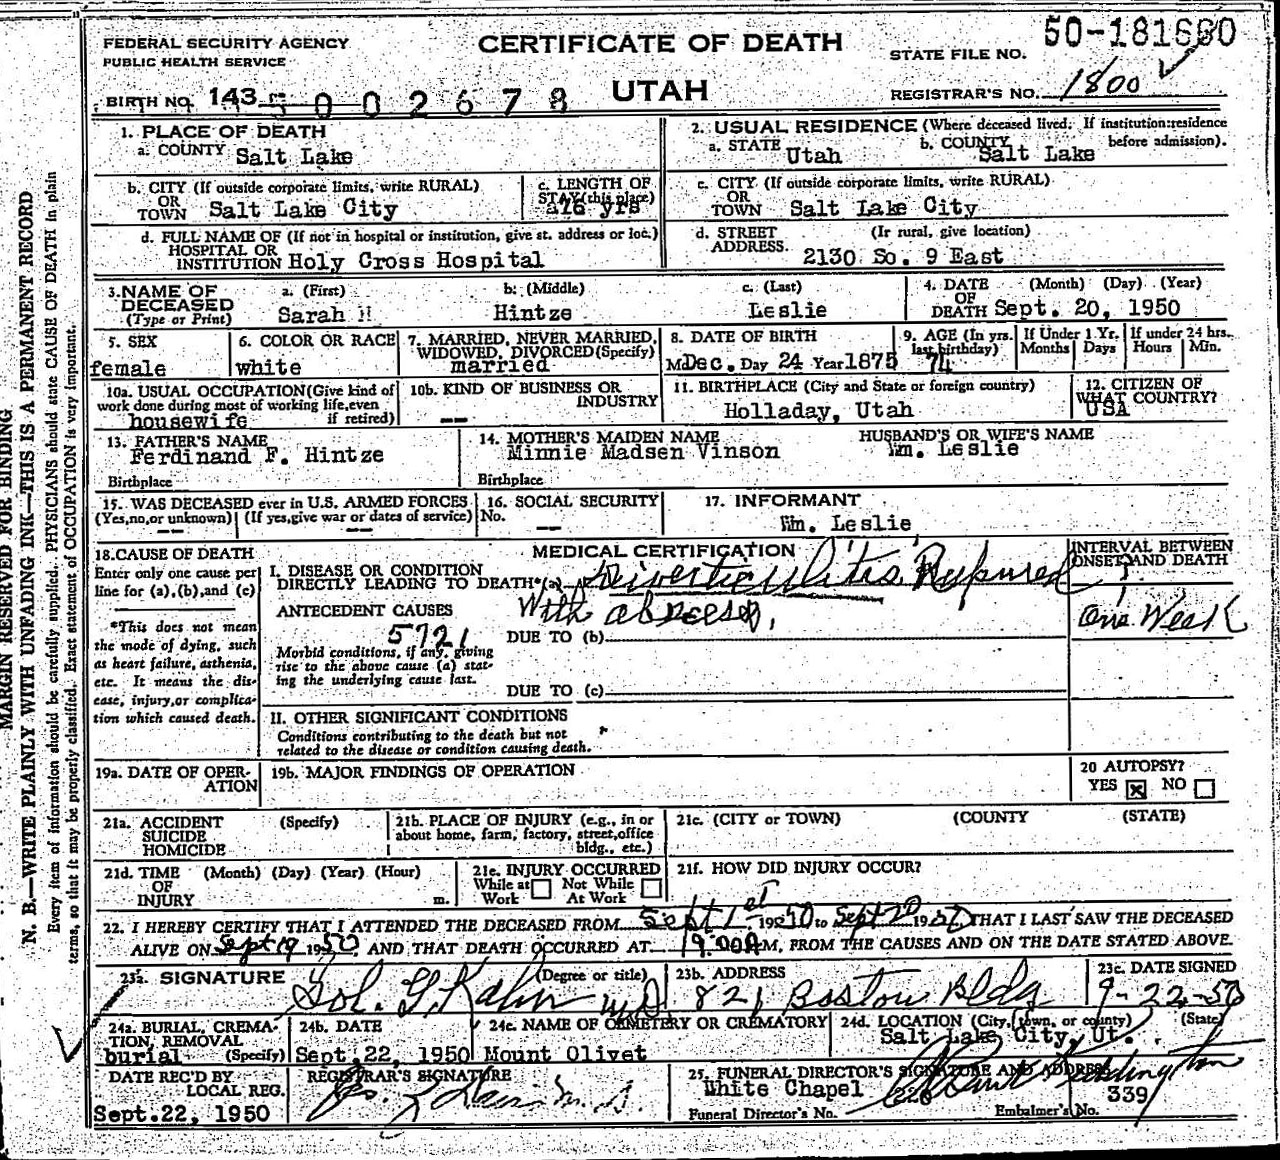 FEDERAL SECURITY AGENCY
PUBLIC HEALTH SERVICE
CERTIFICATE OF DEATH
UTAH
STATE FILE NO. 50-181660
REGISTRAR'S NO. 1800
BIRTH NO. 143 5002678
1. PLACE OF DEATH
a. COUNTY Salt Lake
2. USUAL RESIDENCE (Where deceased lived. If institution: residence before admission).
a. STATE Utah b. COUNTY Salt Lake
b. CITY (If outside corporate limits, write RURAL)
OR TOWN Salt Lake City
c. LENGTH OF STAY (this place) yrs
c. CITY (If outside corporate limits, write RURAL)
OR TOWN Salt Lake City
d. FULL NAME OF (If not in hospital or institution, give st. address or loc.)
HOSPITAL OR INSTITUTION Holy Cross Hospital
d. STREET ADDRESS. (Ir rural, give location)
2130 So. 9 East
3. NAME OF DECEASED (Type or Print)
a. (First) Sarah
b. (Middle) Hintze
c. (Last) Leslie
4. DATE OF DEATH (Month) (Day) (Year)
Sept. 20, 1950
5. SEX
female
6. COLOR OR RACE
white
7. MARRIED, NEVER MARRIED, WIDOWED, DIVORCED (Specify)
married
8. DATE OF BIRTH
Mo Dec. Day 24 Year 1875
9. AGE (In yrs. last birthday) 74
If Under 1 Yr. Months Days
If under 24 hrs. Hours Min.
10a. USUAL OCCUPATION (Give kind of work done during most of working life, even if retired)
housewife
10b. KIND OF BUSINESS OR INDUSTRY
--
11. BIRTHPLACE (City and State or foreign country)
Holladay, Utah
12. CITIZEN OF WHAT COUNTRY?
USA
13. FATHER'S NAME
Ferdinand F. Hintze
Birthplace
14. MOTHER'S MAIDEN NAME
Minnie Madsen Vinson
Birthplace
HUSBAND'S OR WIFE'S NAME
Wm. Leslie
15. WAS DECEASED ever in U.S. ARMED FORCES
(Yes, no, or unknown) (If yes, give war or dates of service)
-- --
16. SOCIAL SECURITY
No. --
17. INFORMANT
Wm. Leslie
18. CAUSE OF DEATH
Enter only one cause per line for (a), (b), and (c)
*This does not mean the mode of dying, such as heart failure, asthenia, etc. It means the disease, injury, or complication which caused death.
MEDICAL CERTIFICATION
I. DISEASE OR CONDITION
DIRECTLY LEADING TO DEATH* (a) Diverticulitis Rupured
With abscess,
ANTECEDENT CAUSES
5721
Morbid conditions, if any, giving rise to the above cause (a) stating the underlying cause last.
DUE TO (b)
DUE TO (c)
INTERVAL BETWEEN ONSET AND DEATH
?
One Week
II. OTHER SIGNIFICANT CONDITIONS
Conditions contributing to the death but not related to the disease or condition causing death.
19a. DATE OF OPERATION
19b. MAJOR FINDINGS OF OPERATION
20 AUTOPSY?
YES ☒ NO ☐
21a. ACCIDENT SUICIDE HOMICIDE (Specify)
21b. PLACE OF INJURY (e.g., in or about home, farm, factory, street, office bldg., etc.)
21c. (CITY or TOWN) (COUNTY (STATE)
21d. TIME OF INJURY (Month) (Day) (Year) (Hour) m.
21e. INJURY OCCURRED
While at Work ☐ Not While At Work ☐
21f. HOW DID INJURY OCCUR?
22. I HEREBY CERTIFY THAT I ATTENDED THE DECEASED FROM Sept 1st 1950 to Sept 20 1950 THAT I LAST SAW THE DECEASED
ALIVE ON Sept 19 1950, AND THAT DEATH OCCURRED AT M, FROM THE CAUSES AND ON THE DATE STATED ABOVE.
23a. SIGNATURE (Degree or title)
Sol. G. Kahn MD
23b. ADDRESS
821 Boston Bldg
23c. DATE SIGNED
9-22-50
24a. BURIAL, CREMATION, REMOVAL (Specify)
burial
24b. DATE
Sept. 22, 1950
24c. NAME OF CEMETERY OR CREMATORY
Mount Olivet
24d. LOCATION (City, town, or county) (State)
Salt Lake City, Ut.
DATE REC'D BY LOCAL REG.
Sept. 22, 1950
REGISTRAR'S SIGNATURE
25. FUNERAL DIRECTOR'S SIGNATURE AND ADDRESS
White Chapel
Funeral Director's No. 226
Embalmer's No. 339
MARGIN RESERVED FOR BINDING
N. B.—WRITE PLAINLY WITH UNFADING INK—THIS IS A PERMANENT RECORD
Every item of information should be carefully supplied. PHYSICIANS should state CAUSE OF DEATH in plain
terms, so that it may be properly classified. Exact statement of OCCUPATION is very important.